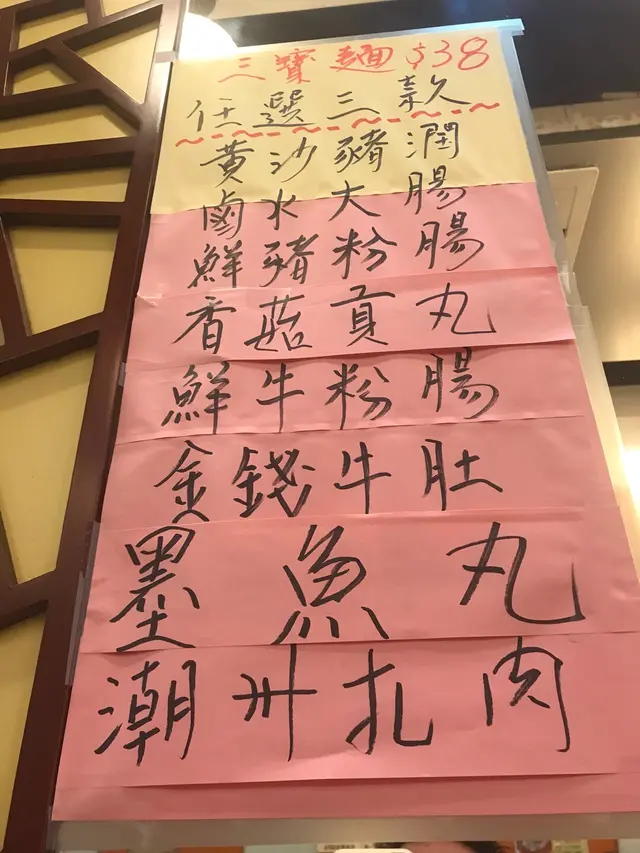 三寶麵$38
任選三款
黃沙豬潤
鹵水大腸
鮮豬粉腸
香菇貢丸
鮮牛粉腸
金錢牛肚
墨魚丸
潮州扎肉